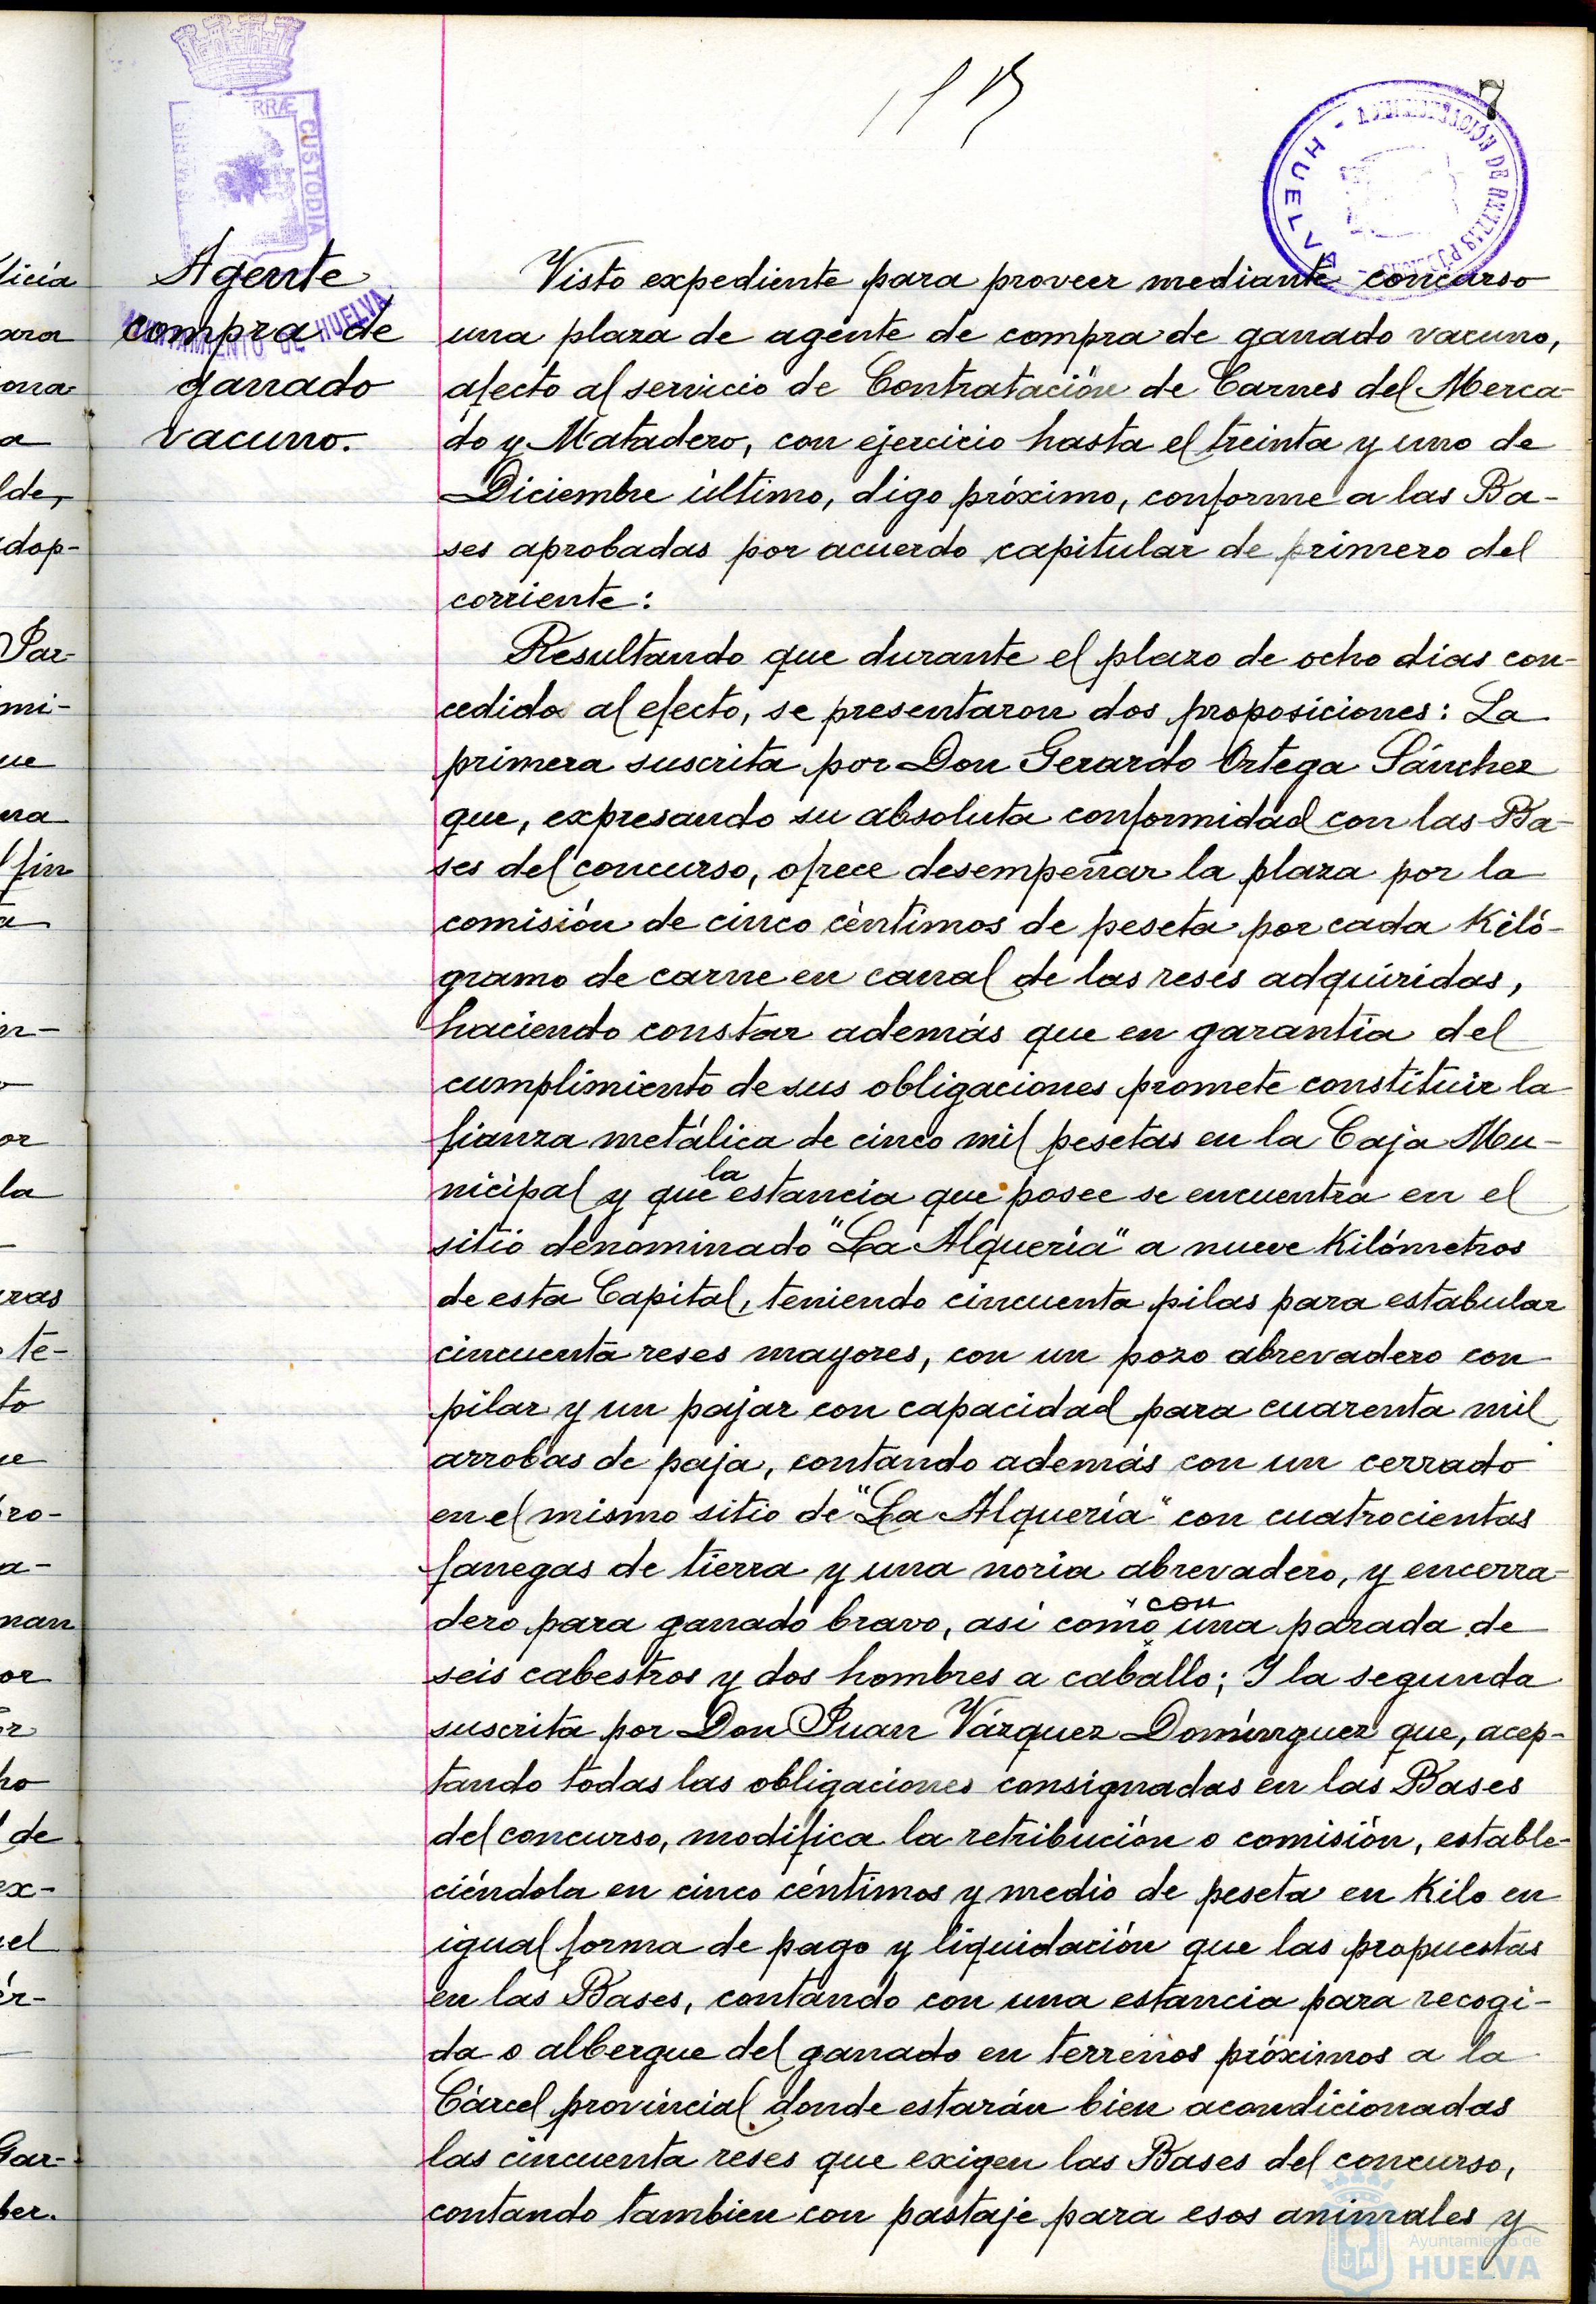 7
RRÆ
CUSTODIA
AYUNTAMIENTO DE HUELVA
ADMINISTRACIÓN DE RENTAS PÚBLICAS - HUELVA -
Agente
compra de
ganado
vacuno.
Visto expediente para proveer mediante concurso
una plaza de agente de compra de ganado vacuno,
afecto al servicio de Contratación de Carnes del Merca-
do y Matadero, con ejercicio hasta el treinta y uno de
Diciembre último, digo próximo, conforme a las Ba-
ses aprobadas por acuerdo capitular de primero del
corriente:
Resultando que durante el plazo de ocho dias con-
cedido al efecto, se presentaron dos proposiciones: La
primera suscrita por Don Gerardo Ortega Sánchez
que, expresando su absoluta conformidad con las Ba-
ses del concurso, ofrece desempeñar la plaza por la
comisión de cinco céntimos de peseta por cada Kiló-
gramo de carne en canal de las reses adquiridas,
haciendo constar además que en garantía del
cumplimiento de sus obligaciones promete constituir la
fianza metálica de cinco mil pesetas en la Caja Mu-
nicipal y que la estancia que posee se encuentra en el
sitio denominado "La Alquería" a nueve Kilómetros
de esta Capital, teniendo cincuenta pilas para estabular
cincuenta reses mayores, con un pozo abrevadero con
pilar y un pajar con capacidad para cuarenta mil
arrobas de paja, contando además con un cerrado
en el mismo sitio de "La Alquería" con cuatrocientas
fanegas de tierra y una noria abrevadero, y encerra-
dero para ganado bravo, asi como con una parada de
seis cabestros y dos hombres a caballo; Y la segunda
suscrita por Don Juan Vázquez Domínguez que, acep-
tando todas las obligaciones consignadas en las Bases
del concurso, modifica la retribución o comisión, estable-
ciéndola en cinco céntimos y medio de peseta en Kilo en
igual forma de pago y liquidación que las propuestas
en las Bases, contando con una estancia para recogi-
da o albergue del ganado en terrenos próximos a la
Cárcel provincial donde estarán bien acondicionadas
las cincuenta reses que exigen las Bases del concurso,
contando tambien con pastaje para esos animales y
Ayuntamiento de
HUELVA